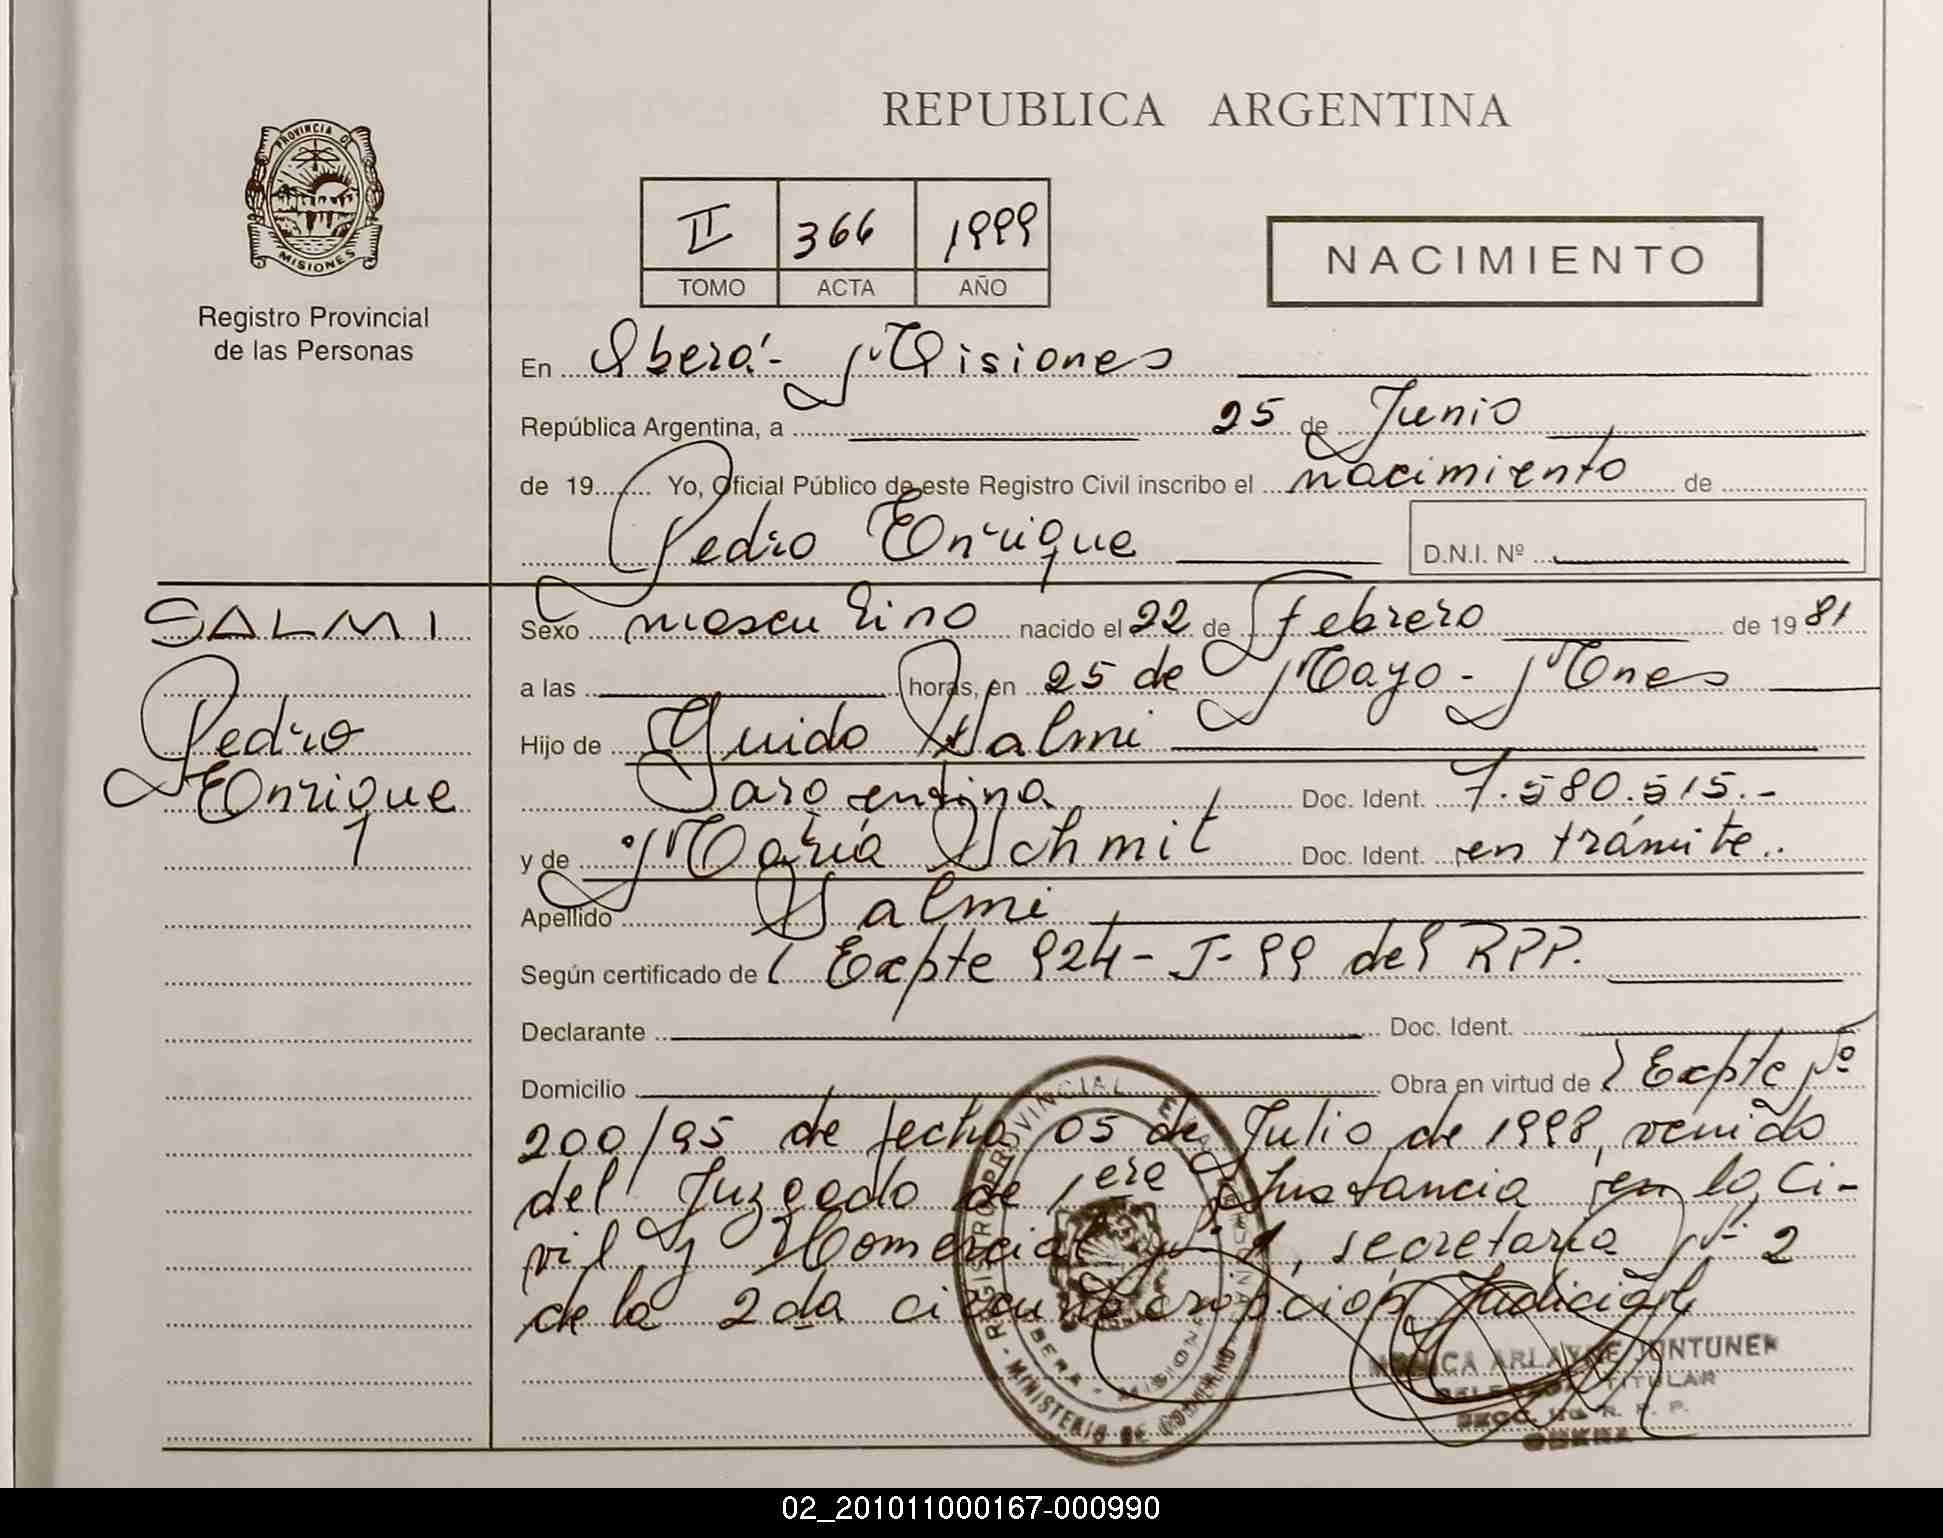 REPUBLICA ARGENTINA
PROVINCIA DE
MISIONES
Registro Provincial
de las Personas
II 366 1999
TOMO ACTA AÑO
NACIMIENTO
En Oberá - Misiones
República Argentina, a 25 de Junio
de 19 Yo, Oficial Público de este Registro Civil inscribo el nacimiento de
Pedro Enrique D.N.I. Nº
SALMI
Pedro
Enrique
Sexo masculino nacido el 22 de Febrero de 1981
a las horas, en 25 de Mayo - Mnes
Hijo de Guido Salmi
argentina Doc. Ident. 7.580.515.-
y de María Schmit Doc. Ident. en trámite..
Apellido Salmi
Según certificado de Expte 924-J-99 del RPP.
Declarante Doc. Ident.
Domicilio Obra en virtud de Expte Nº
200/95 de fecha 05 de Julio de 1998, venido
del Juzgado de 1era Instancia en lo Ci-
vil y Comercial Nº 1, secretaria Nº 2
de la 2da circunscripción Judicial
REGISTRO PROVINCIAL
- MINISTERIO DE GOBIERNO -
OBERA - MISIONES
ARLAYNE JONTUNEN
TITULAR
R. P. P.
OBERA
02_201011000167-000990